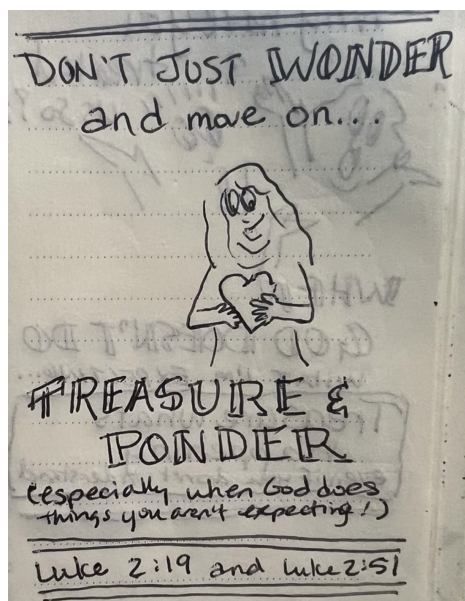 DON'T JUST WONDER
and move on...
TREASURE &
PONDER
(especially when God does
things you aren't expecting!)
Luke 2:19 and Luke 2:51